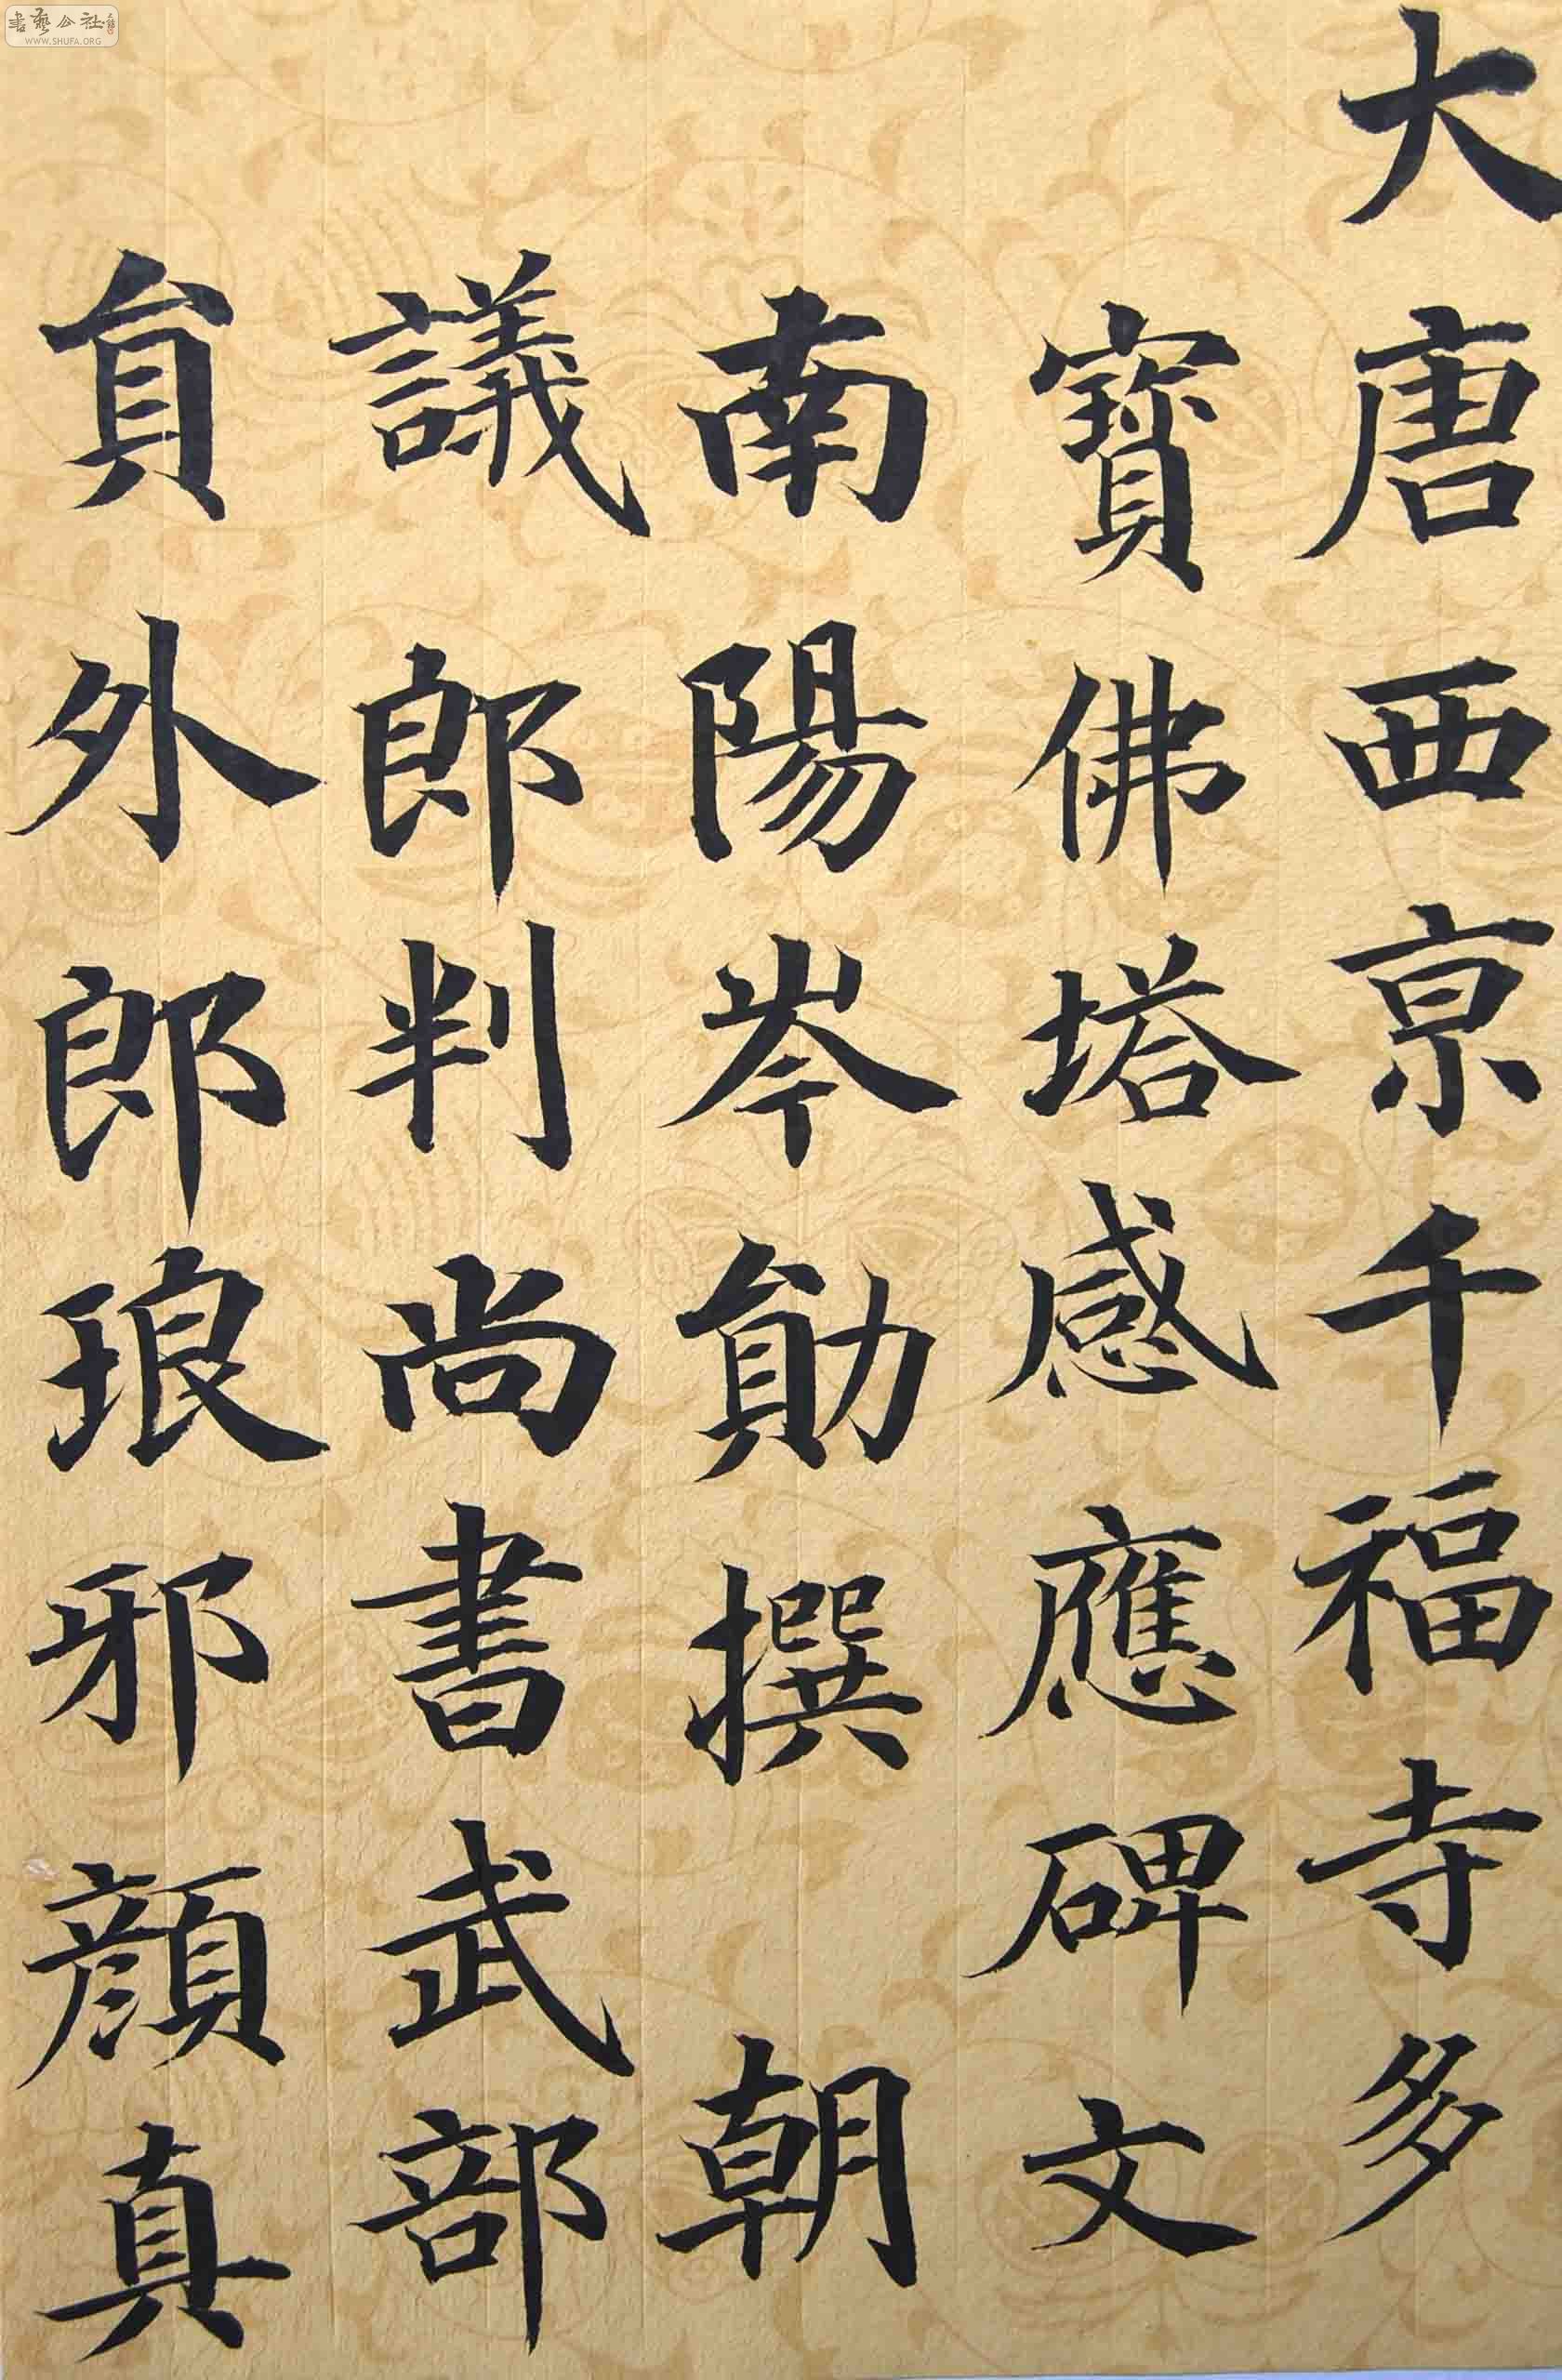 大唐西京千福寺多
寶佛塔感應碑文
南陽岑勛撰 朝
議郎判尚書武部
員外郎琅邪顏真
書藝公社
WWW.SHUFA.ORG